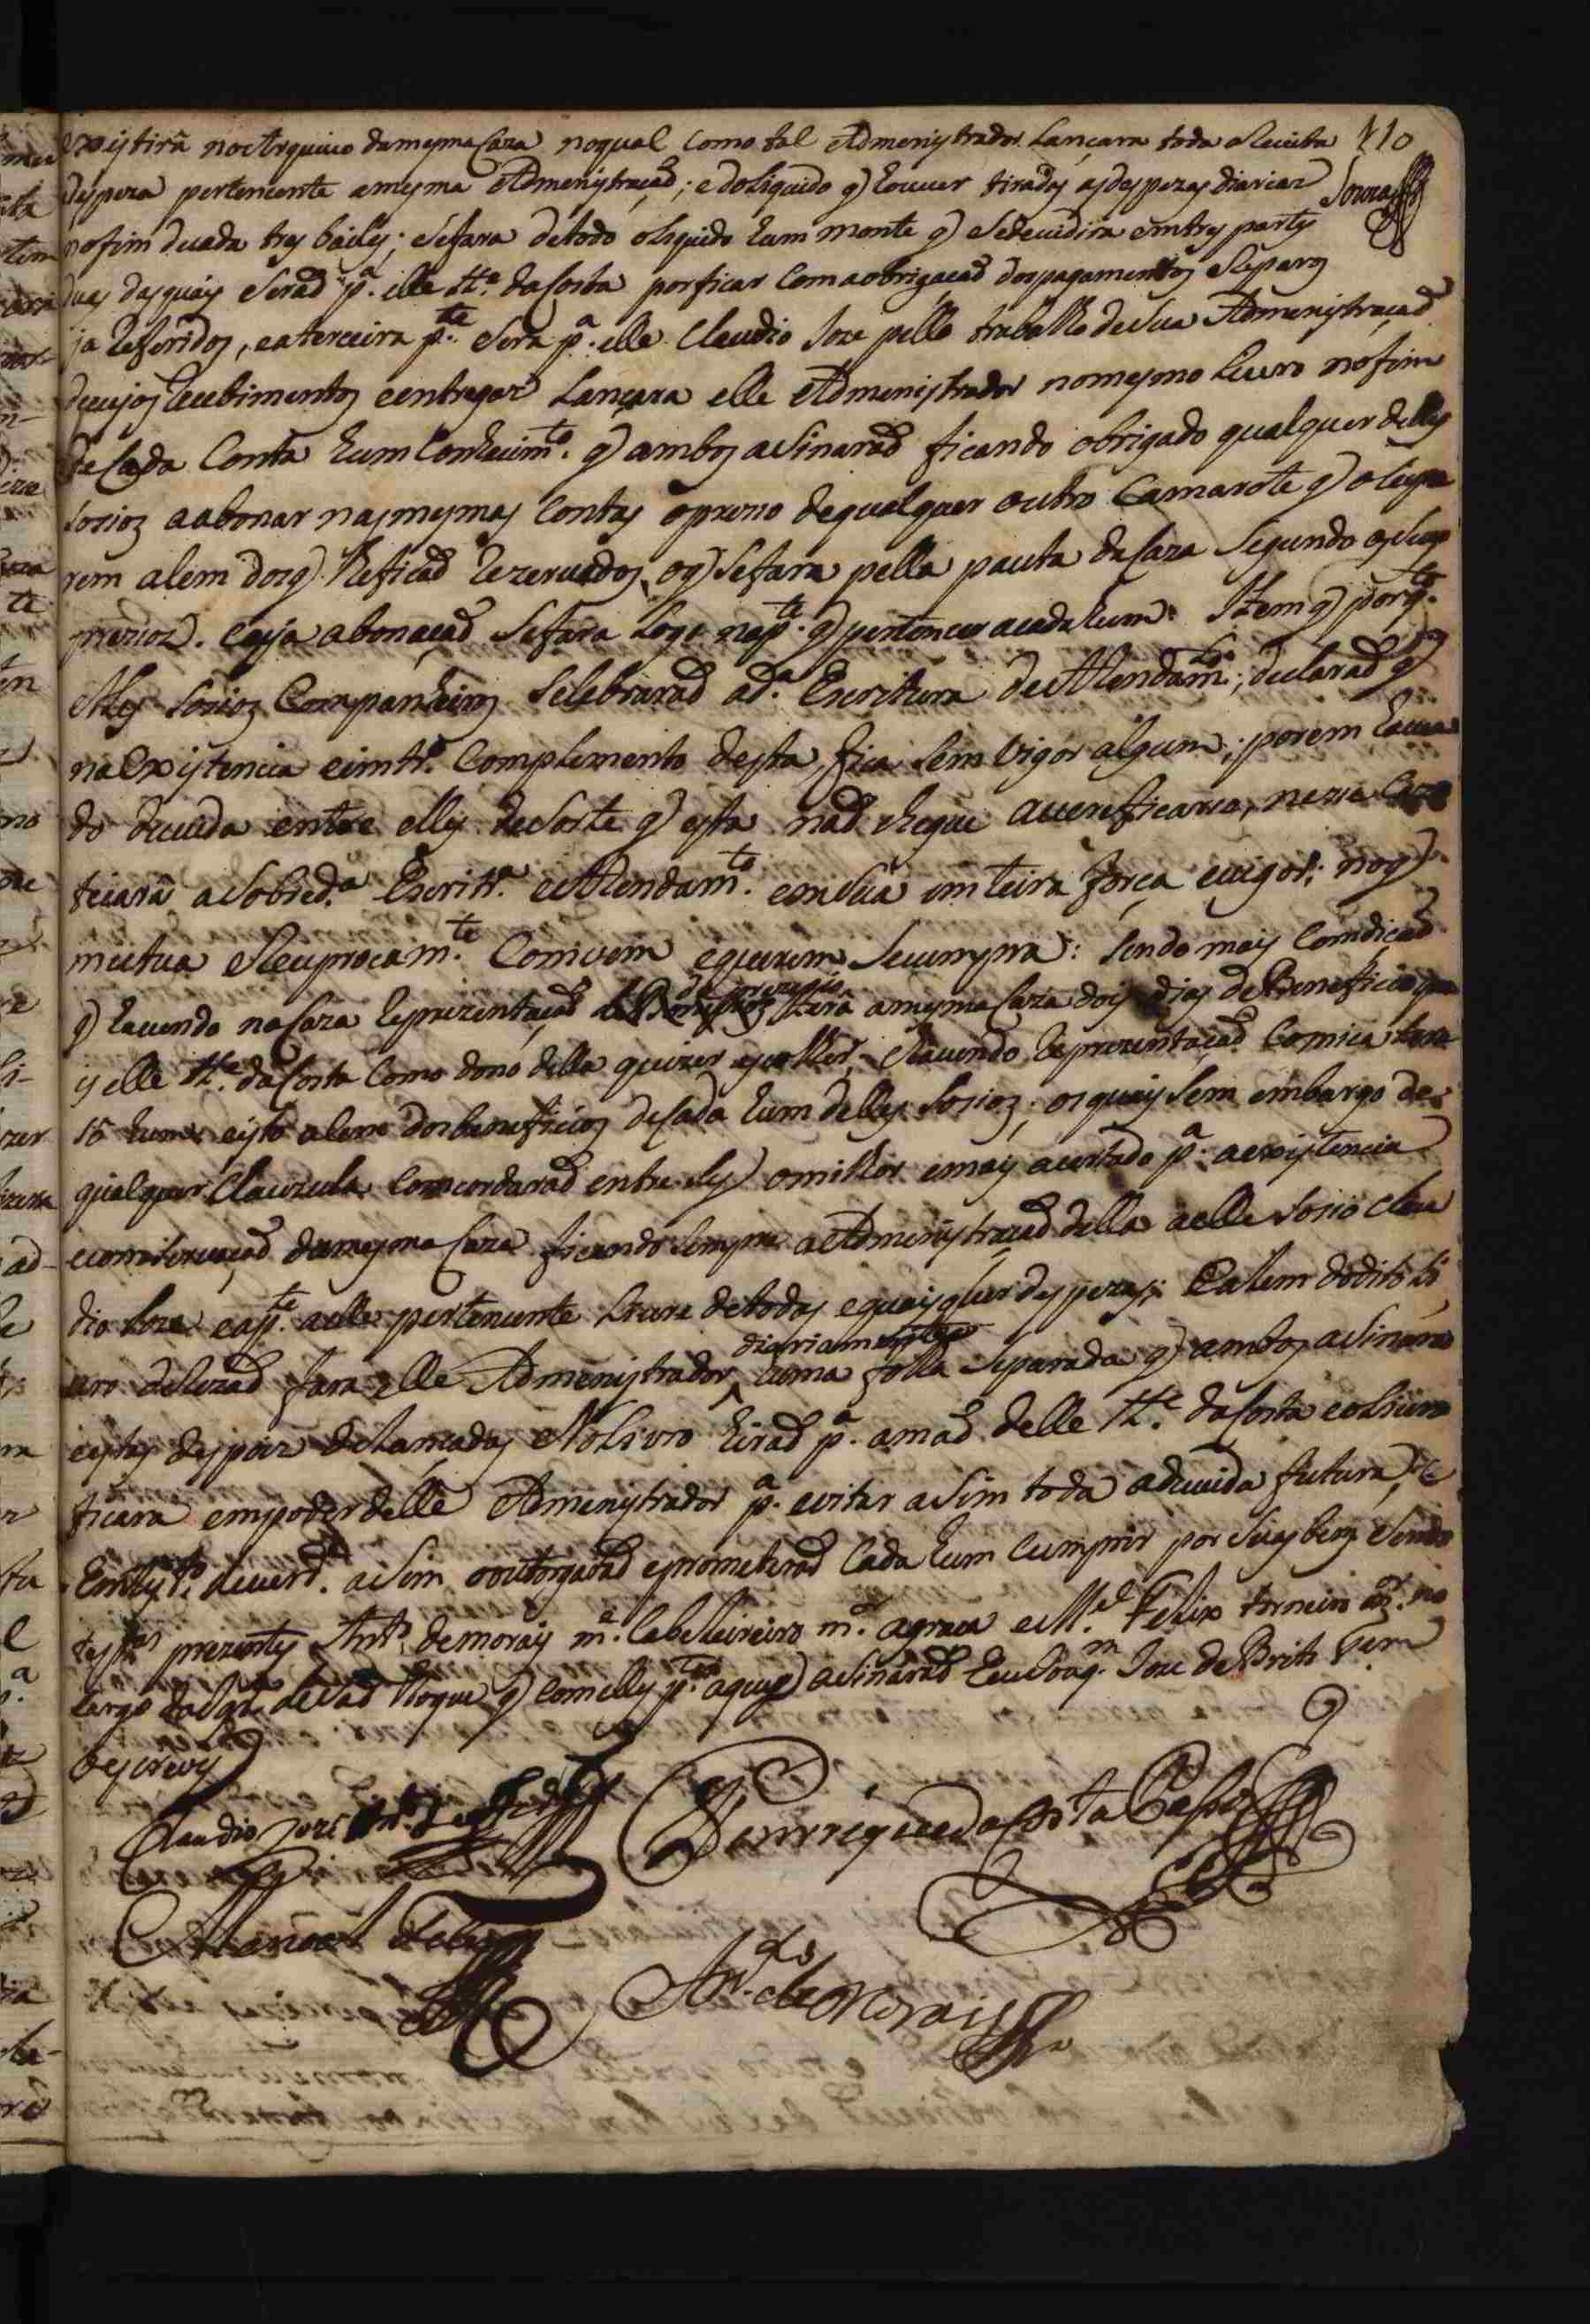 110
Souza
existirâ no Arquivo da mesma Caza no qual Como tal Admenystrador Lançara toda a Receita
despeza pertencente a mesma Admenystração; e do Liquido q houver tiradas as despezas diarias
no fim de cada tres baile; se fara de todo o liquido hum monte q se devidira em tres partes
duas das quais serão p.ª elle H.e da Costa por ficar Com a obrigacão dos pagamentos e Reparos
ja Referidos, e a terceira p.te sera p.ª elle Claudio Joze pello trabalho de Sua Admenystração
de cujos Recebimentos e entregas Lançara elle Admenistrador no mesmo Livro no fim
de Cada Conta hum Conhecim.to q ambos asinarão ficando obrigado qualquer delles
Socios a abonar nas mesmas Contas o preso de qualquer outro Camarote q ocupa
rem alem dos q lhe ficão Rezervados, o q Se fara pella pauta da Caza Segundo os Seus
prezios. Cuja abonacão Se fara Logo na p.te q pertencer a cada hum. Item q por q.to
elles Socios Companheiros Selebrarão a d.ª Escritura de ARendam.to; declarão q
na Existencia e imtr.º Complemento desta, fica Sem Vigor algum; porem haven
do duvida entre elles de Sorte q esta não chegue a vereficarse, nesse Cazo
ficarâ a Sobred.ª Escrit.ª e ARendam.to em Sua imteira força e vigor; no q
mutua e Reciprocam.te Comvem e querem Se cumpra: Sendo mais Comdição
q havendo na Caza Reprezentação de prezepio terâ a mesma Caza dois dias de Beneficio que
is elle H.e da Costa Como dono della quizer escolher, e havendo Reprezentação Comica tera
só hum e isto alem dos beneficios de Cada hum delles Socios; os quais Sem embargo de
qualquer Clauzula Comcordarão entre Sy o milhor e mais acertado p.ª a existencia
e comservação da mesma Caza ficando Sempre a Admenystração della a elle Socio Clau
dio Joze e a p.te a elle pertencente Livre de todas e quaisquer despezas; E alem do dito Li
vro de Rezão fara elle Admenystrador diariamente huma folha Separada q ambos asinarão
e estas despois de Lancadas no Livro hirão p.ª a mão delle H.e da Costa e o Livro
ficara em poder delle Admenystrador p.ª evitar asim toda a duvida futura, e
Em test.º de verd.e asim outorgarão e prometerão Cada hum Cumprir por Seus bens Sendo
test.as prezentes Ant.º de morais m.e Cabelleireiro m.or a graca e M.el Felix torneiro m.or no
Largo da Igr.ª de São Roque q com elles p.tes aqui asinarão Eu Joaq.m Joze de Brito
o escrevy
Claudio Joze
Henrrique da Costa Pasos
Manoel Felix
An.to de Morais